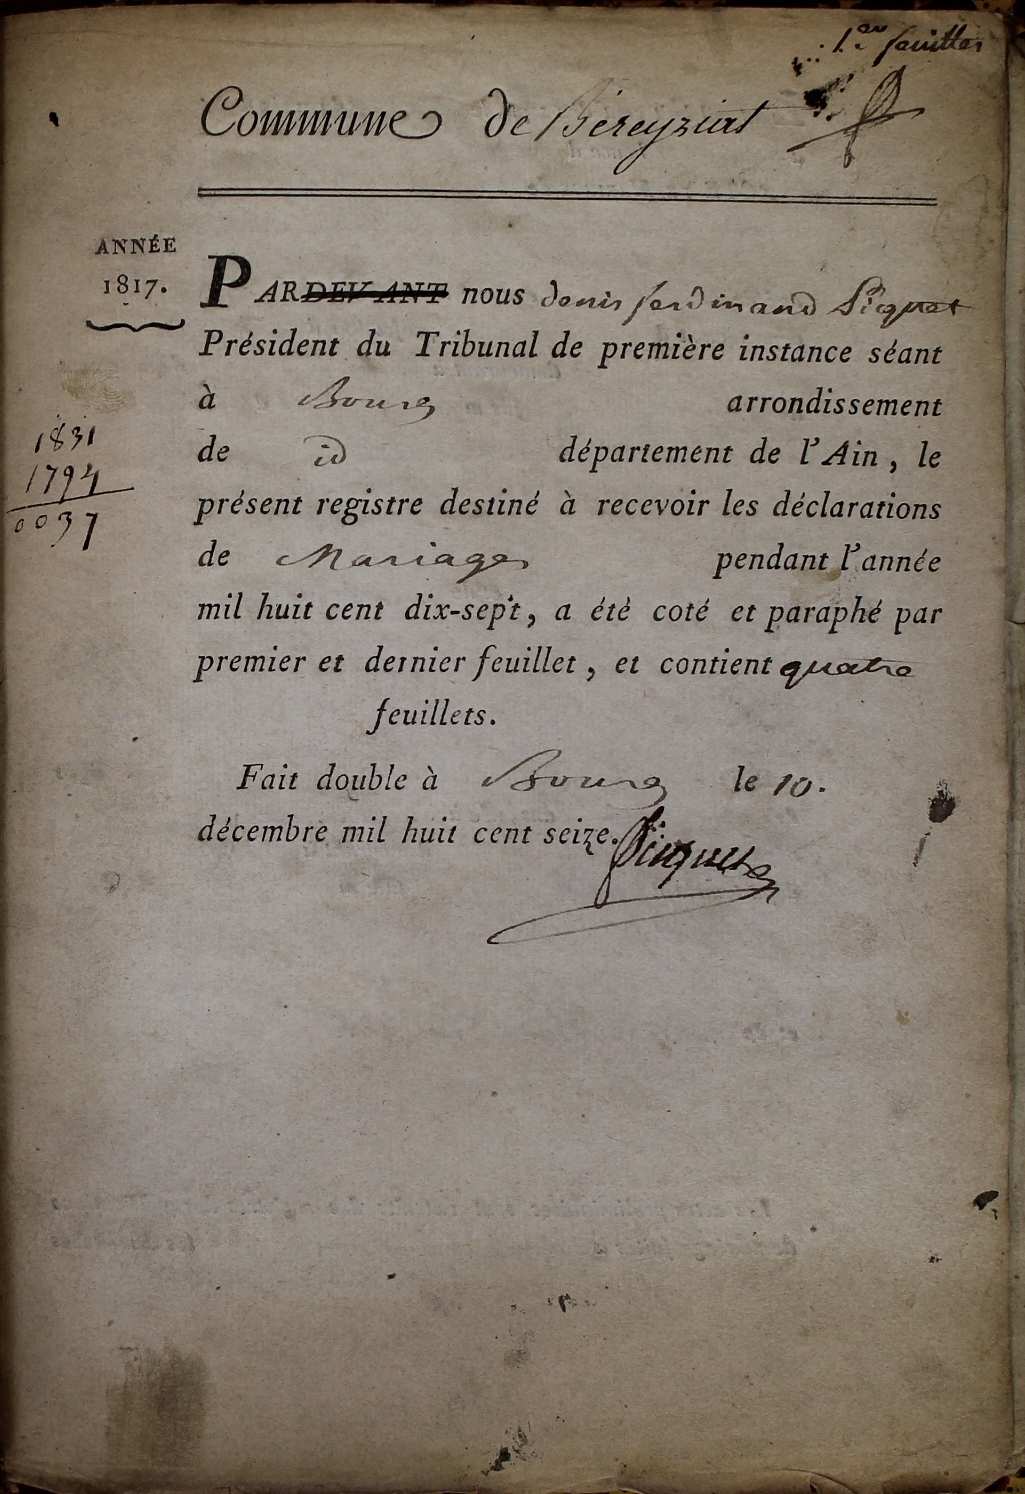 1.er feuillet
Commune de Béréyziat
ANNÉE
1817.
PARDEVANT nous denis ferdinand Picquet
Président du Tribunal de première instance séant
à Bourg arrondissement
de id département de l'Ain, le
présent registre destiné à recevoir les déclarations
de Mariages pendant l'année
mil huit cent dix-sept, a été coté et paraphé par
premier et dernier feuillet, et contient quatre
feuillets.
Fait double à Bourg le 10.
décembre mil huit cent seize.
Picquet
1831
1794
0037